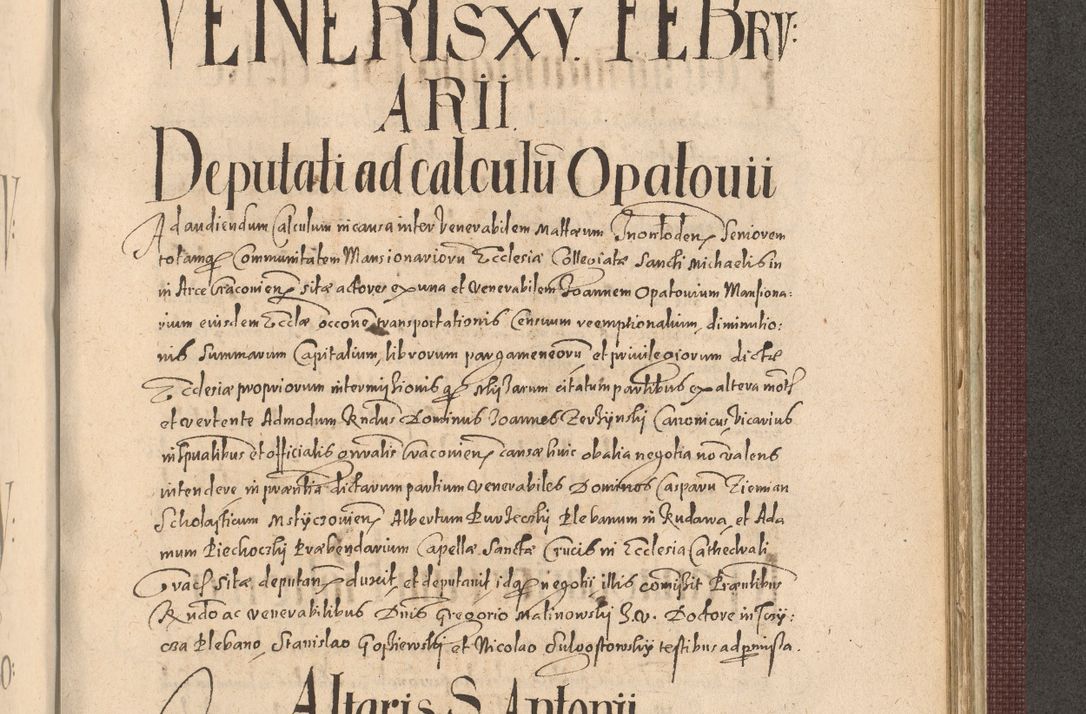 VENERIS XV. FEBRV:
ARII.
Deputati ad calculū Opatouii
Ad audiendum Calculum in causa inter Venerabilem Mattæum Seniorem
totamq Communitatem Mansionariorū Ecclesiæ Collegiatæ Sancti Michaelis in
in Arce Cracouien sitæ actores ex una et Venerabilem Joannem Opatouium Mansiona:
rium eiusdem Eccłæ occōne transportationis Censuum reemptionalium, diminutio:
nis Summarum Capitalium, librorum pargameneorū et priuilegiorum dictæ
Ecclesiæ propriorum intermissionis q Missarum citatum partibus ex altera
et vertente Admodum Rndus Dominus Joannes Canonicus Vicarius
in Spualibus et officialis gnralis Cracouien causæ huic ob alia negotia no valens
intendere in præntia dictarum partium Venerabiles Dominos Casparū Zieman
Scholasticum Albertum Plebanum in Rudawa, et Ada
mum Piechocskÿ Præbendarium Capellæ Sanctæ Crucis in Ecclesia Cathedrali
Crac sitæ, deputan duxit, et deputauit idq negotii illis comisit Præntibus
Rndo ac Venerabilibus Dnis Gregorio Malinowskÿ Doctore in
Plebano, Stanislao et Nicolao testibus ad pmissa.
Altaris S. Antonii